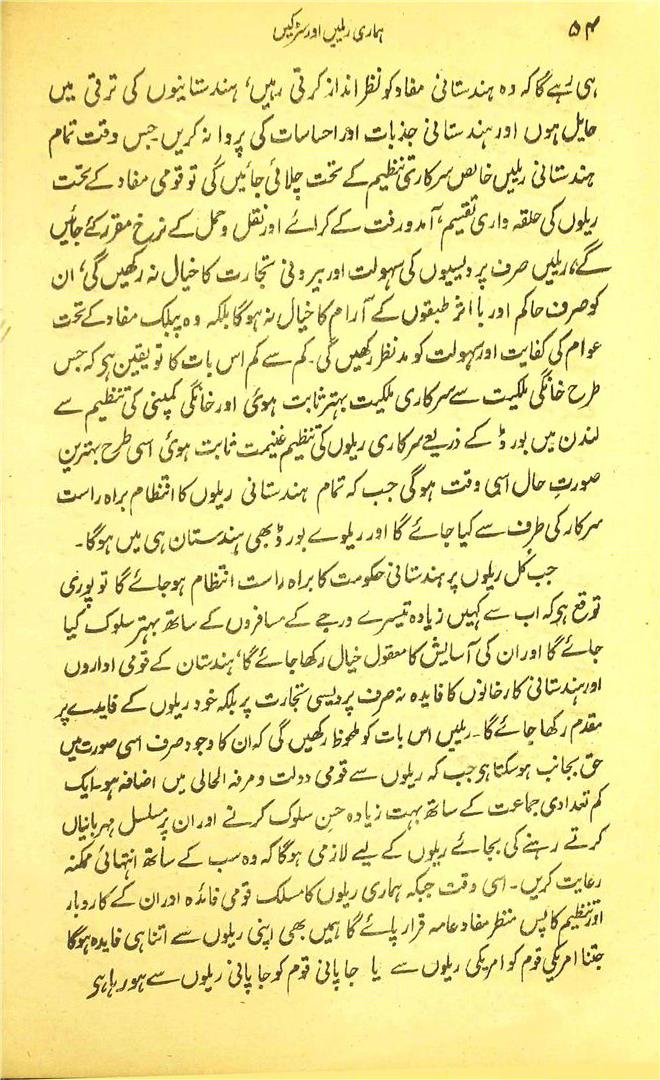 ۵۴ ہماری ریلیں اور سڑکیں
ہی رہے گا کہ وہ ہندستانی مفاد کو نظر انداز کرتی رہیں، ہندستانیوں کی ترقی میں
حایل ہوں اور ہندستانی جذبات اور احساسات کی پروا نہ کریں جس وقت تمام
ہندستانی ریلیں خالص سرکاری تنظیم کے تحت چلائی جائیں گی تو قومی مفاد کے تحت
ریلوں کی حلقہ واری تقسیم، آمد و رفت کے کرائے اور نقل و حمل کے نرخ مقرر کئے جائیں
گے، ریلیں صرف پردیسیوں کی سہولت اور بیرونی تجارت کا خیال نہ رکھیں گی، ان
کو صرف حاکم اور با اثر طبقوں کے آرام کا خیال نہ ہوگا بلکہ وہ پبلک مفاد کے تحت
عوام کی کفایت اور سہولت کو مدنظر رکھیں گی۔ کم سے کم اس بات کا تو یقین ہی کہ جس
طرح خانگی ملکیت سے سرکاری ملکیت بہتر ثابت ہوئی اور خانگی کمپنی کی تنظیم سے
لندن میں بورڈ کے ذریعے سرکاری ریلوں کی تنظیم غنیمت ثابت ہوئی اسی طرح بہترین
صورتِ حال اسی وقت ہوگی جب کہ تمام ہندستانی ریلوں کا انتظام براہ راست
سرکار کی طرف سے کیا جائے گا اور ریلوے بورڈ بھی ہندستان ہی میں ہوگا۔
جب کُل ریلوں پر ہندستانی حکومت کا براہ راست انتظام ہوجائے گا تو پوری
توقع ہی کہ اب سے کہیں زیادہ تیسرے درجے کے مسافروں کے ساتھ بہتر سلوک کیا
جائے گا اور ان کی آسایش کا معقول خیال رکھا جائے گا، ہندستان کے قومی اداروں
اور ہندستانی کارخانوں کا فایدہ نہ صرف پردیسی تجارت پر بلکہ خود ریلوں کے فایدے پر
مقدم رکھا جائے گا۔ ریلیں اس بات کو ملحوظ رکھیں گی کہ ان کا وجود صرف اسی صورت میں
حق بجانب ہوسکتا ہی جب کہ ریلوں سے قومی دولت و مرفہ الحالی میں اضافہ ہو۔ ایک
کم تعدادی جماعت کے ساتھ بہت زیادہ حسنِ سلوک کرنے اور ان پر مسلسل مہربانیاں
کرتے رہنے کی بجائے ریلوں کے لیے لازمی ہوگا کہ وہ سب کے ساتھ انتہائی ممکنہ
رعایت کریں۔ اسی وقت جبکہ ہماری ریلوں کا مسلک قومی فائدہ اور ان کے کاروبار
اور تنظیم کا پس منظر مفاد عامہ قرار پائے گا ہمیں بھی اپنی ریلوں سے اتنا ہی فایدہ ہوگا
جتنا امریکی قوم کو امریکی ریلوں سے یا جاپانی قوم کو جاپانی ریلوں سے ہو رہا ہی